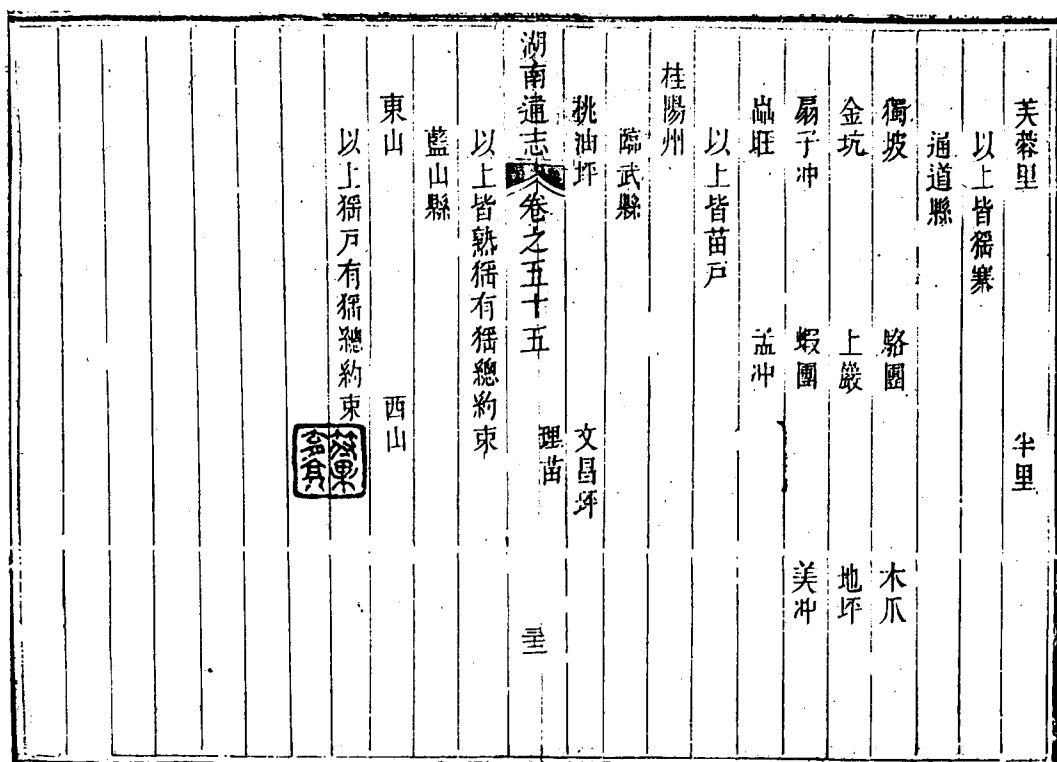 芙蓉里 半里
以上皆猺寨
通道縣
獨坡 駱團 木爪
金坑 上巖 地坪
扇子冲 蝦團 美冲
旺 孟冲
以上皆苗戸
桂陽州
臨武縣
桃油坪 文昌坪
湖南通志 卷之五十五 理苗
以上皆熟猺有猺總約束
藍山縣
東山 西山
以上猺戸有猺總約束